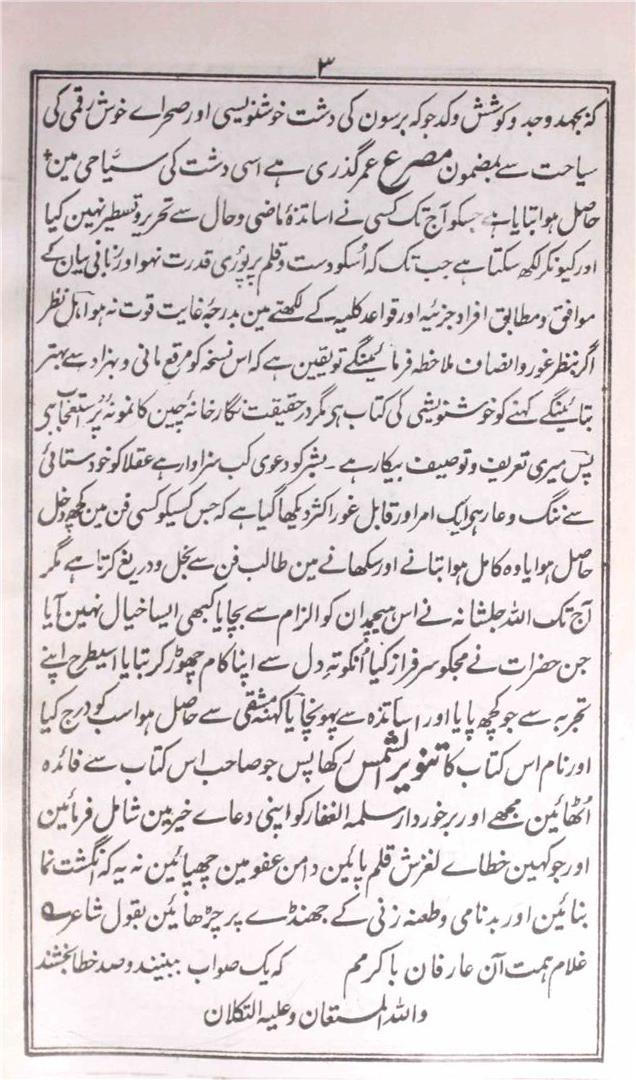 ۳
کہ بجہد وجد و کوشش وکد جو کہ برسون کی دشت خوشنویسی اور صحراے خوش رقمی کی
سیاحت سے بمضمون مصرع عمر گذری ہے اسی دشت کی سیّاحی مین
حاصل ہوا بتایا ہے جسکو آج تک کسی نے اساتذۂ ماضی وحال سے تحریر و تسطیر نہین کیا
اور کیونکر لکھ سکتا ہے جب تک کہ اُسکو دست و قلم پر پوری قدرت نہو اور زبانی بیان کے
موافق و مطابق افراد جزئیہ اور قواعد کلیہ کے لکھنے مین بدرجۂ غایت قوت نہ ہو اہل نظر
اگر بنظر غور و انصاف ملاحظہ فرمائینگے تو یقین ہے کہ اس نسخہ کو مرقع مانی و بہزاد سے بہتر
بتائینگے کہنے کو خوشنویشی کی کتاب ہی مگر درحقیقت نگار خانۂ چین کا نمونۂ پُر استعجاب ہی
پس میری تعریف و توصیف بیکار ہے ۔ بشر کو دعوی کب سزاوار ہے عقلا کو خودستائی
سے ننگ و عار ہی ایک امر اور قابل غور اکثر دیکھا گیا ہے کہ جس کسیکو کسی فن مین کچھ دخل
حاصل ہوا یا وہ کامل ہوا بتانے اور سکھانے مین طالب فن سے بخل و دریغ کرتا ہے مگر
آج تک اللہ جلشانہ نے اس ہیچمدان کو الزام سے بچایا کبھی ایسا خیال نہین آیا
جن حضرات نے مجکو سرفراز کیا اُنکو تہ دل سے اپنا کام چھوڑ کر بتایا اسیطرح اپنے
تجربہ سے جو کچھ پایا اور اساتذہ سے پہونچا یا کہنہ مشقی سے حاصل ہوا سب کو درج کیا
اور نام اس کتاب کا تنویر الشمس رکھا پس جو صاحب اس کتاب سے فائدہ
اُٹھائین مجھے اور برخوردار سلمہ الغفار کو اپنی دعاے خیر مین شامل فرمائین
اور جو کہین خطاے لغزش قلم پائین دامن عفو مین چھپائین نہ یہ کہ انگشت نما
بنائین اور بدنامی و طعنہ زنی کے جھنڈے پر چڑھائین بقول شاعر
غلام ہمت آن عارفان با کرمم کہ یک صواب ببینند و صد خطا بخشند
واللہ المستعان وعلیہ التکلان